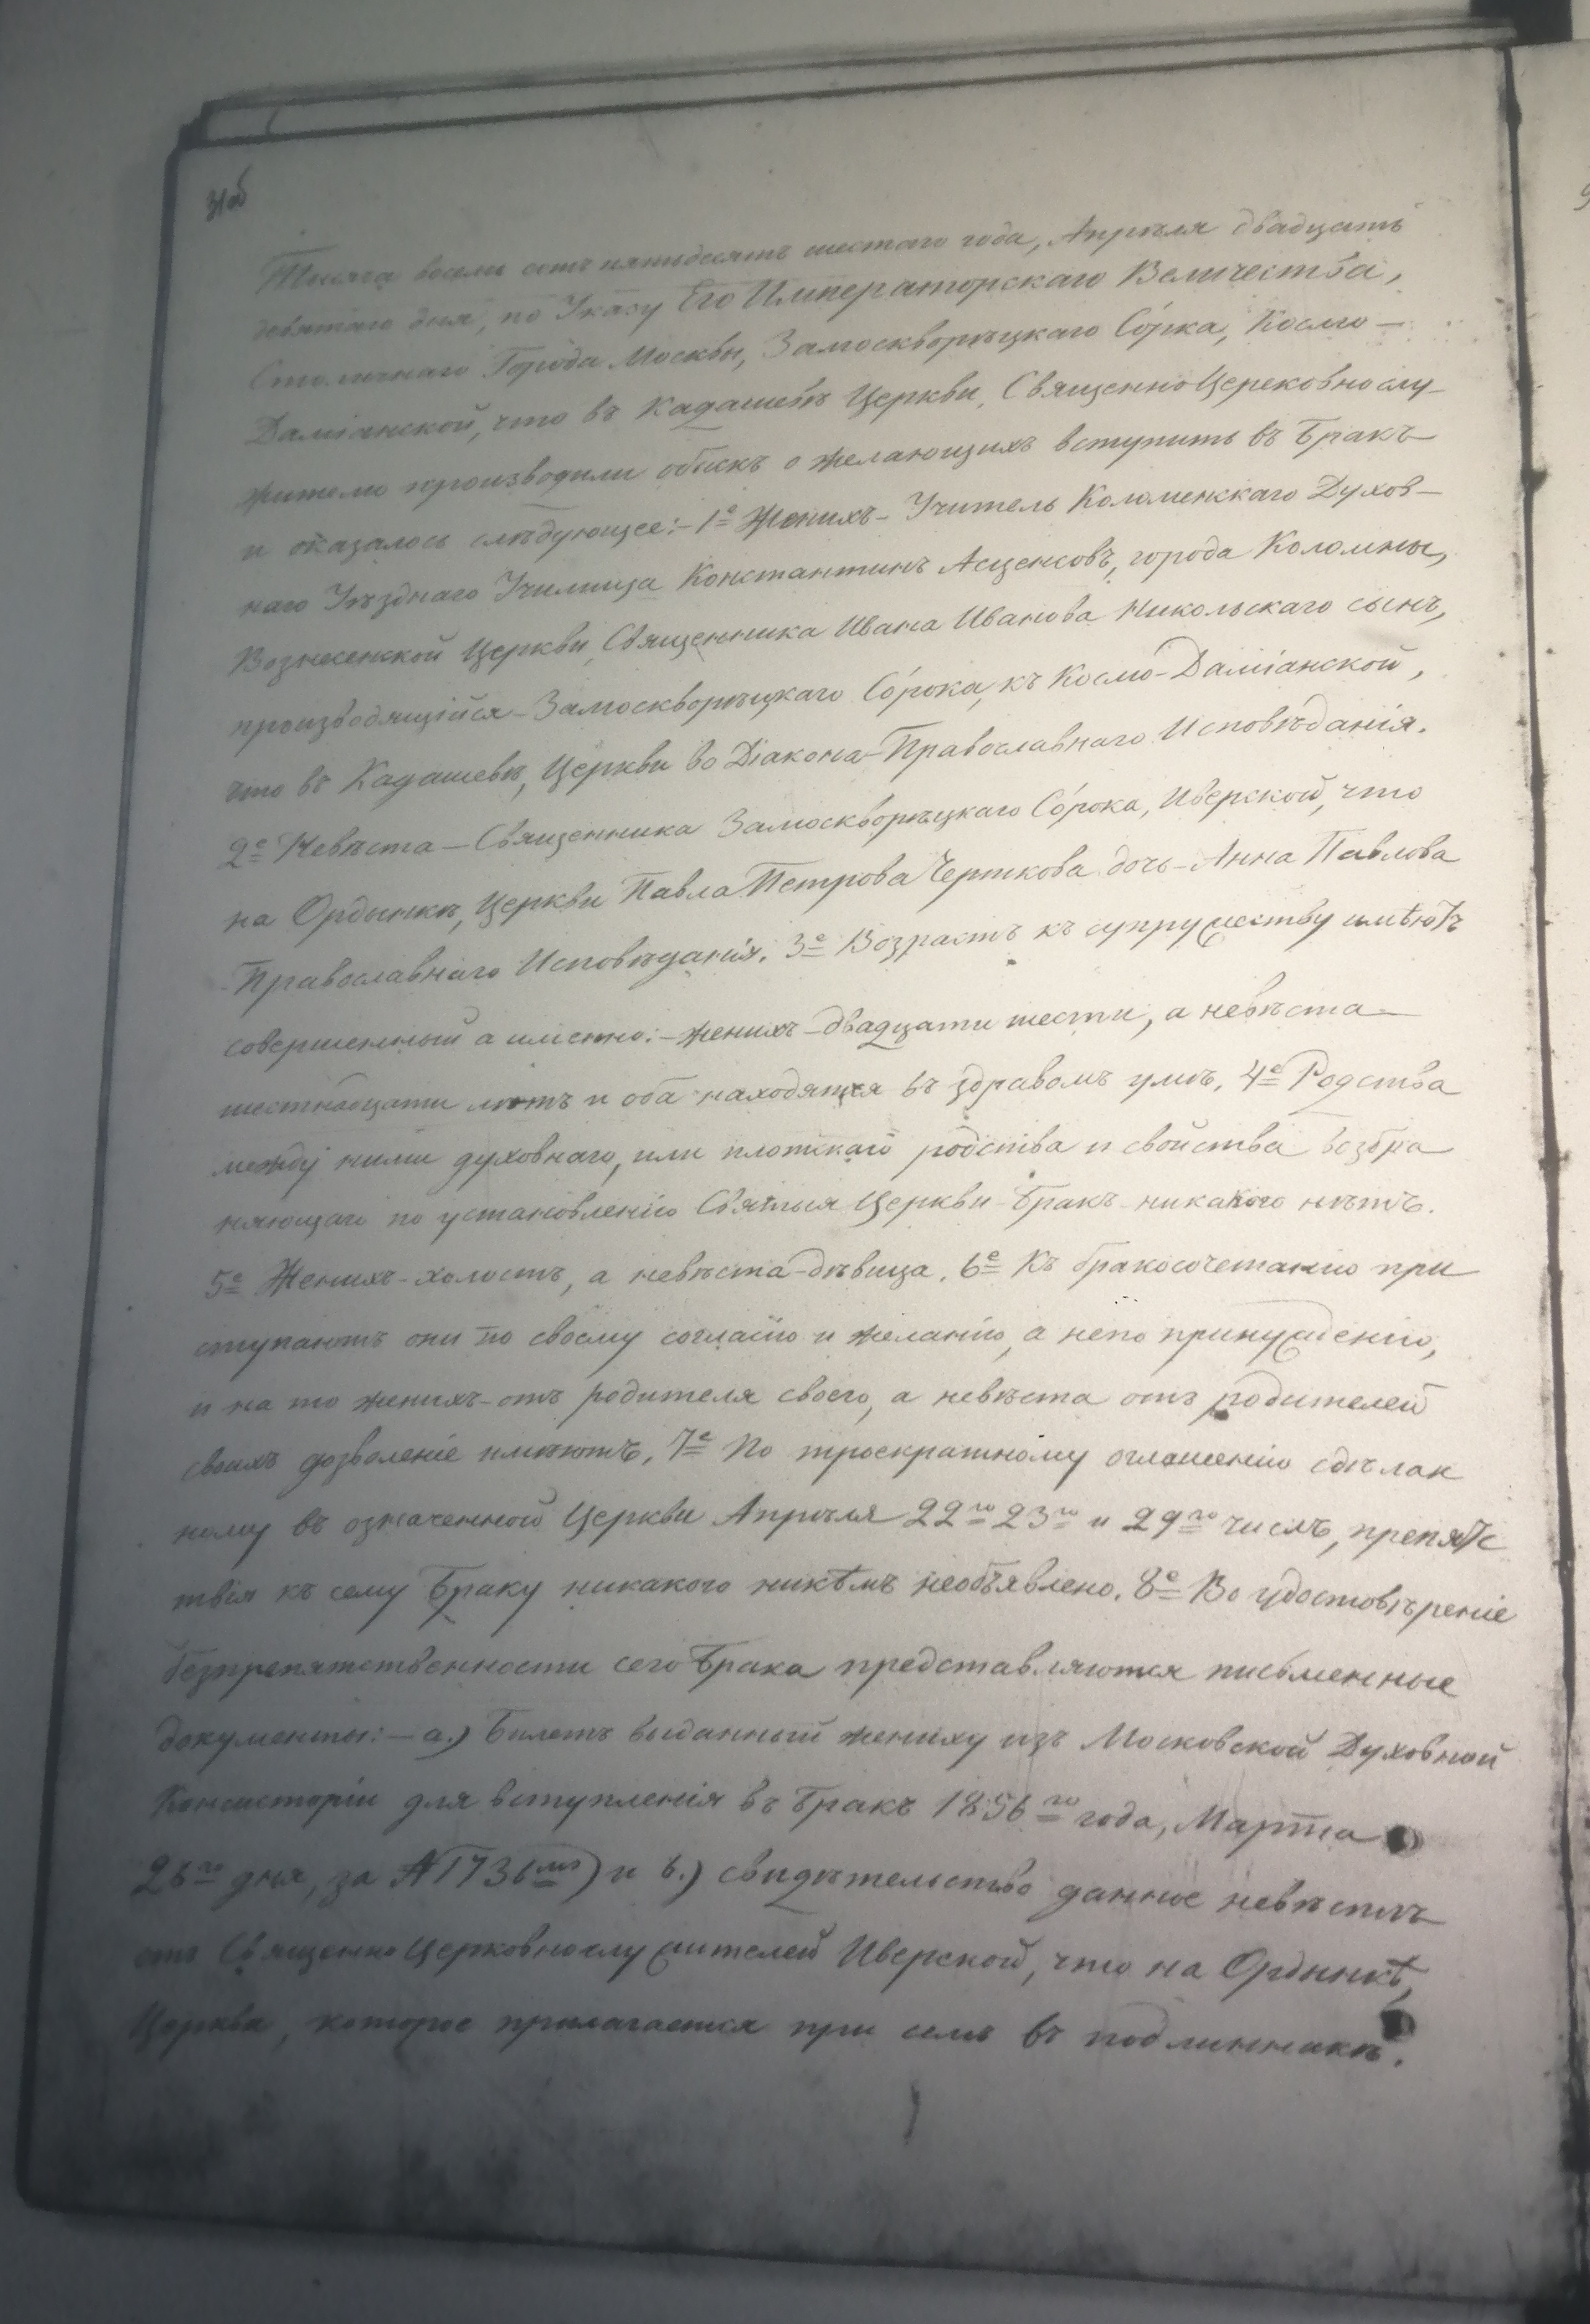 31об
Тысяча восемь сотъ пятьдесятъ шестаго года, Апрѣля двадцать
девятаго дня, по Указу Его Императорскаго Величества,
Столичнаго Города Москвы, Замоскворѣцкаго Со́рка, Космо-
Даміанской, что въ Кадашевѣ Церкви, Священноцерековнослу-
жители производили обыскъ о желающихъ вступить въ Бракъ
и оказалось слѣдующее:- 1е Женихъ- Учитель Коломенскаго Духов-
наго Уѣзднаго Училища Константинъ Асценсовъ, города Коломны,
Вознесенской Церкви, Священника Ивана Иванова Никольскаго сынъ,
производящійся- Замоскворѣцкаго Со́рока, къ Космо-Даміанской,
что въ Кадашевѣ, Церкви во Діакона- Православнаго Исповѣданія.
2е Невѣста- Священника Замоскворѣцкаго Со́рока, Иверской, что
на Ордынкѣ, Церкви Павла Петрова Черткова дочь- Анна Павлова
Православнаго Исповѣданія. 3е Возрастъ къ супружеству имѣютъ
совершенный а именно:- женихъ- двадцати шести, а невѣста-
шестнадцати лѣтъ и оба находятся въ здравомъ умѣ. 4е Родства
между ними духовнаго, или плотскаго родства и свойства возбра
няющаго по установленію Святыя Церкви- Бракъ- никакого нѣтъ.
5е Женихъ- холостъ, а невѣста- дѣвица. 6е Къ бракосочетанію при
ступаютъ они по своему согласію и желанію, а непо принужденію,
и на то женихъ- отъ родителя своего, а невѣста отъ родителей
своихъ дозволеніе имѣютъ. 7е По троекратному оглашенію сдѣлан
ному въ означенной Церкви Апрѣля 22го 23го и 29го числъ, препятс
твія къ сему Браку никакого никѣмъ необъявлено. 8е Во удостовѣреніе
безпрепятственности сего Брака представляются письменные
документы:- а.) Билетъ выданный жениху изъ Московской Духовной
Консисторіи для вступленія въ Бракъ 1856го года, Марта
26го дня, за № 1736мъ) и в.) свидѣтельство данное невѣстѣ
отъ Священно Церковнослужителей Иверской, что на Ордынкѣ,
Церкви, которое прилагается при семъ въ подлинникѣ.